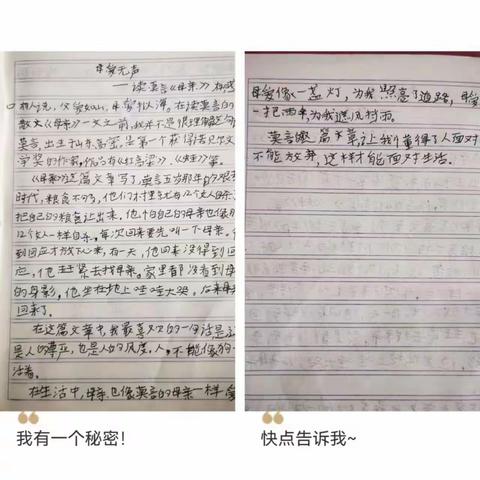 母爱无声
——读莫言《母亲》有感
有人说，父爱如山，母爱似海。在读莫言的
散文《母亲》一文之前，我并不是很理解这句
莫言，出生于山东高密，是第一个获得诺贝尔文
学奖的作家，作品有《红高粱》、《蛙》等。
《母亲》这篇文章写了，莫言五岁那年的艰
时代，粮食不多，他们村里
把自己的粮食让出来，他怕自己的母亲也像那
12个女人一样自杀，每次回来要先叫一下母亲，
到回应才放下心来，有一天，他回来没得到回
应，他赶紧去找母亲，家里都没看到母
的身影，他坐在地上哇哇大哭，后来母
回来了。
在这篇文章中，我最喜欢的一句话是这
是人的尊严，也是人的风度。人，不能像狗一
活着。
在生活中，母亲也像莫言的母亲一样爱
母爱像一盏灯，为我照亮了道路，母爱
一把雨伞，为我遮风挡雨。
莫言的这篇文章，让我们懂得了人面对
不能放弃，这样才能面对生活。
我有一个秘密！
快点告诉我~